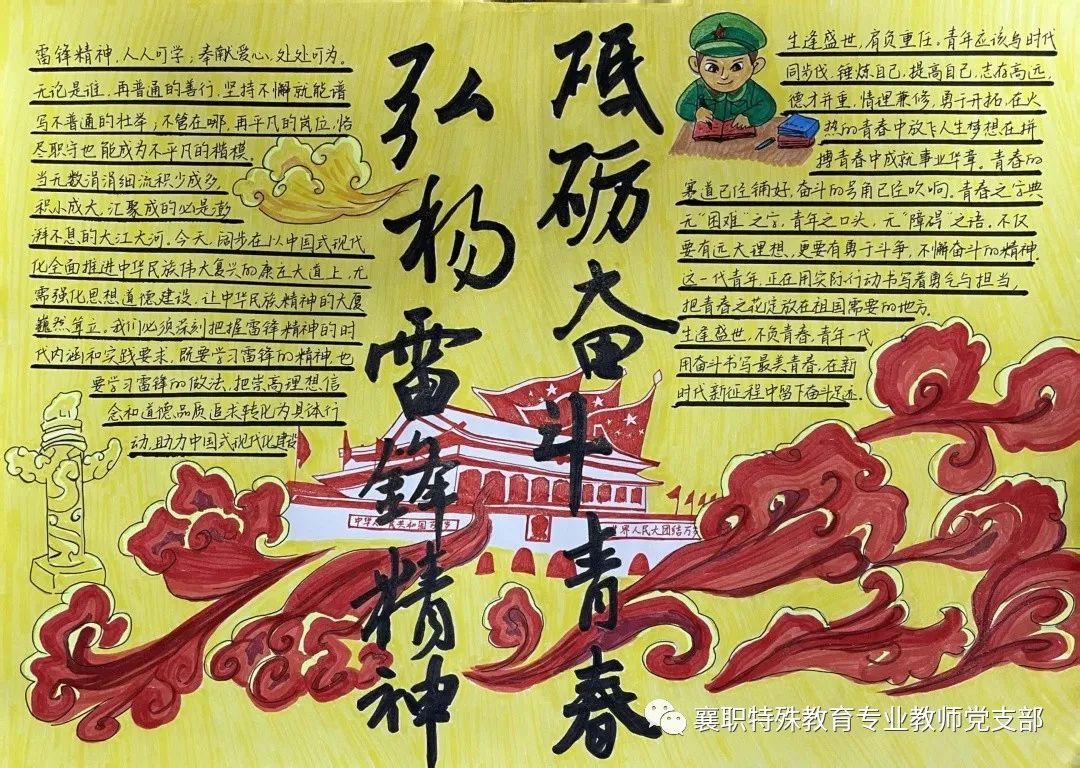 雷锋精神,人人可学;奉献爱心,处处可为。
无论是谁,再普通的善行,坚持不懈就能谱
写不普通的壮举;不管在哪,再平凡的岗位,恪
尽职守也能成为不平凡的楷模。
当无数涓涓细流积少成多
积小成大,汇聚成的必是澎
湃不息的大江大河。今天,阔步在以中国式现代
化全面推进中华民族伟大复兴的康庄大道上,尤
需强化思想道德建设,让中华民族精神的大厦
巍然耸立。我们必须深刻把握雷锋精神的时
代内涵和实践要求,既要学习雷锋的精神,也
要学习雷锋的做法,把崇高理想信
念和道德品质追求转化为具体行
动,助力中国式现代化建设
弘杨雷锋精神
砥砺奋斗青春
生逢盛世,肩负重任。青年应该与时代
同步伐,锤炼自己,提高自己,志存高远,
德才并重,情理兼修,勇于开拓,在火
热的青春中放飞人生梦想在拼
搏青春中成就事业华章。青春的
赛道已经铺好,奋斗的号角已经吹响。青春之字典
无“困难”之字,青年之口头,无“障碍”之语。不仅
要有远大理想,更要有勇于斗争,不懈奋斗的精神.
这一代青年,正在用实际行动书写着勇气与担当,
把青春之花定放在祖国需要的地方.
生逢盛世,不负青春,青年一代
用奋斗书写最美青春,在新
时代新征程中留下奋斗足迹.
中华人民共和国万岁
世界人民大团结万岁
襄职特殊教育专业教师党支部